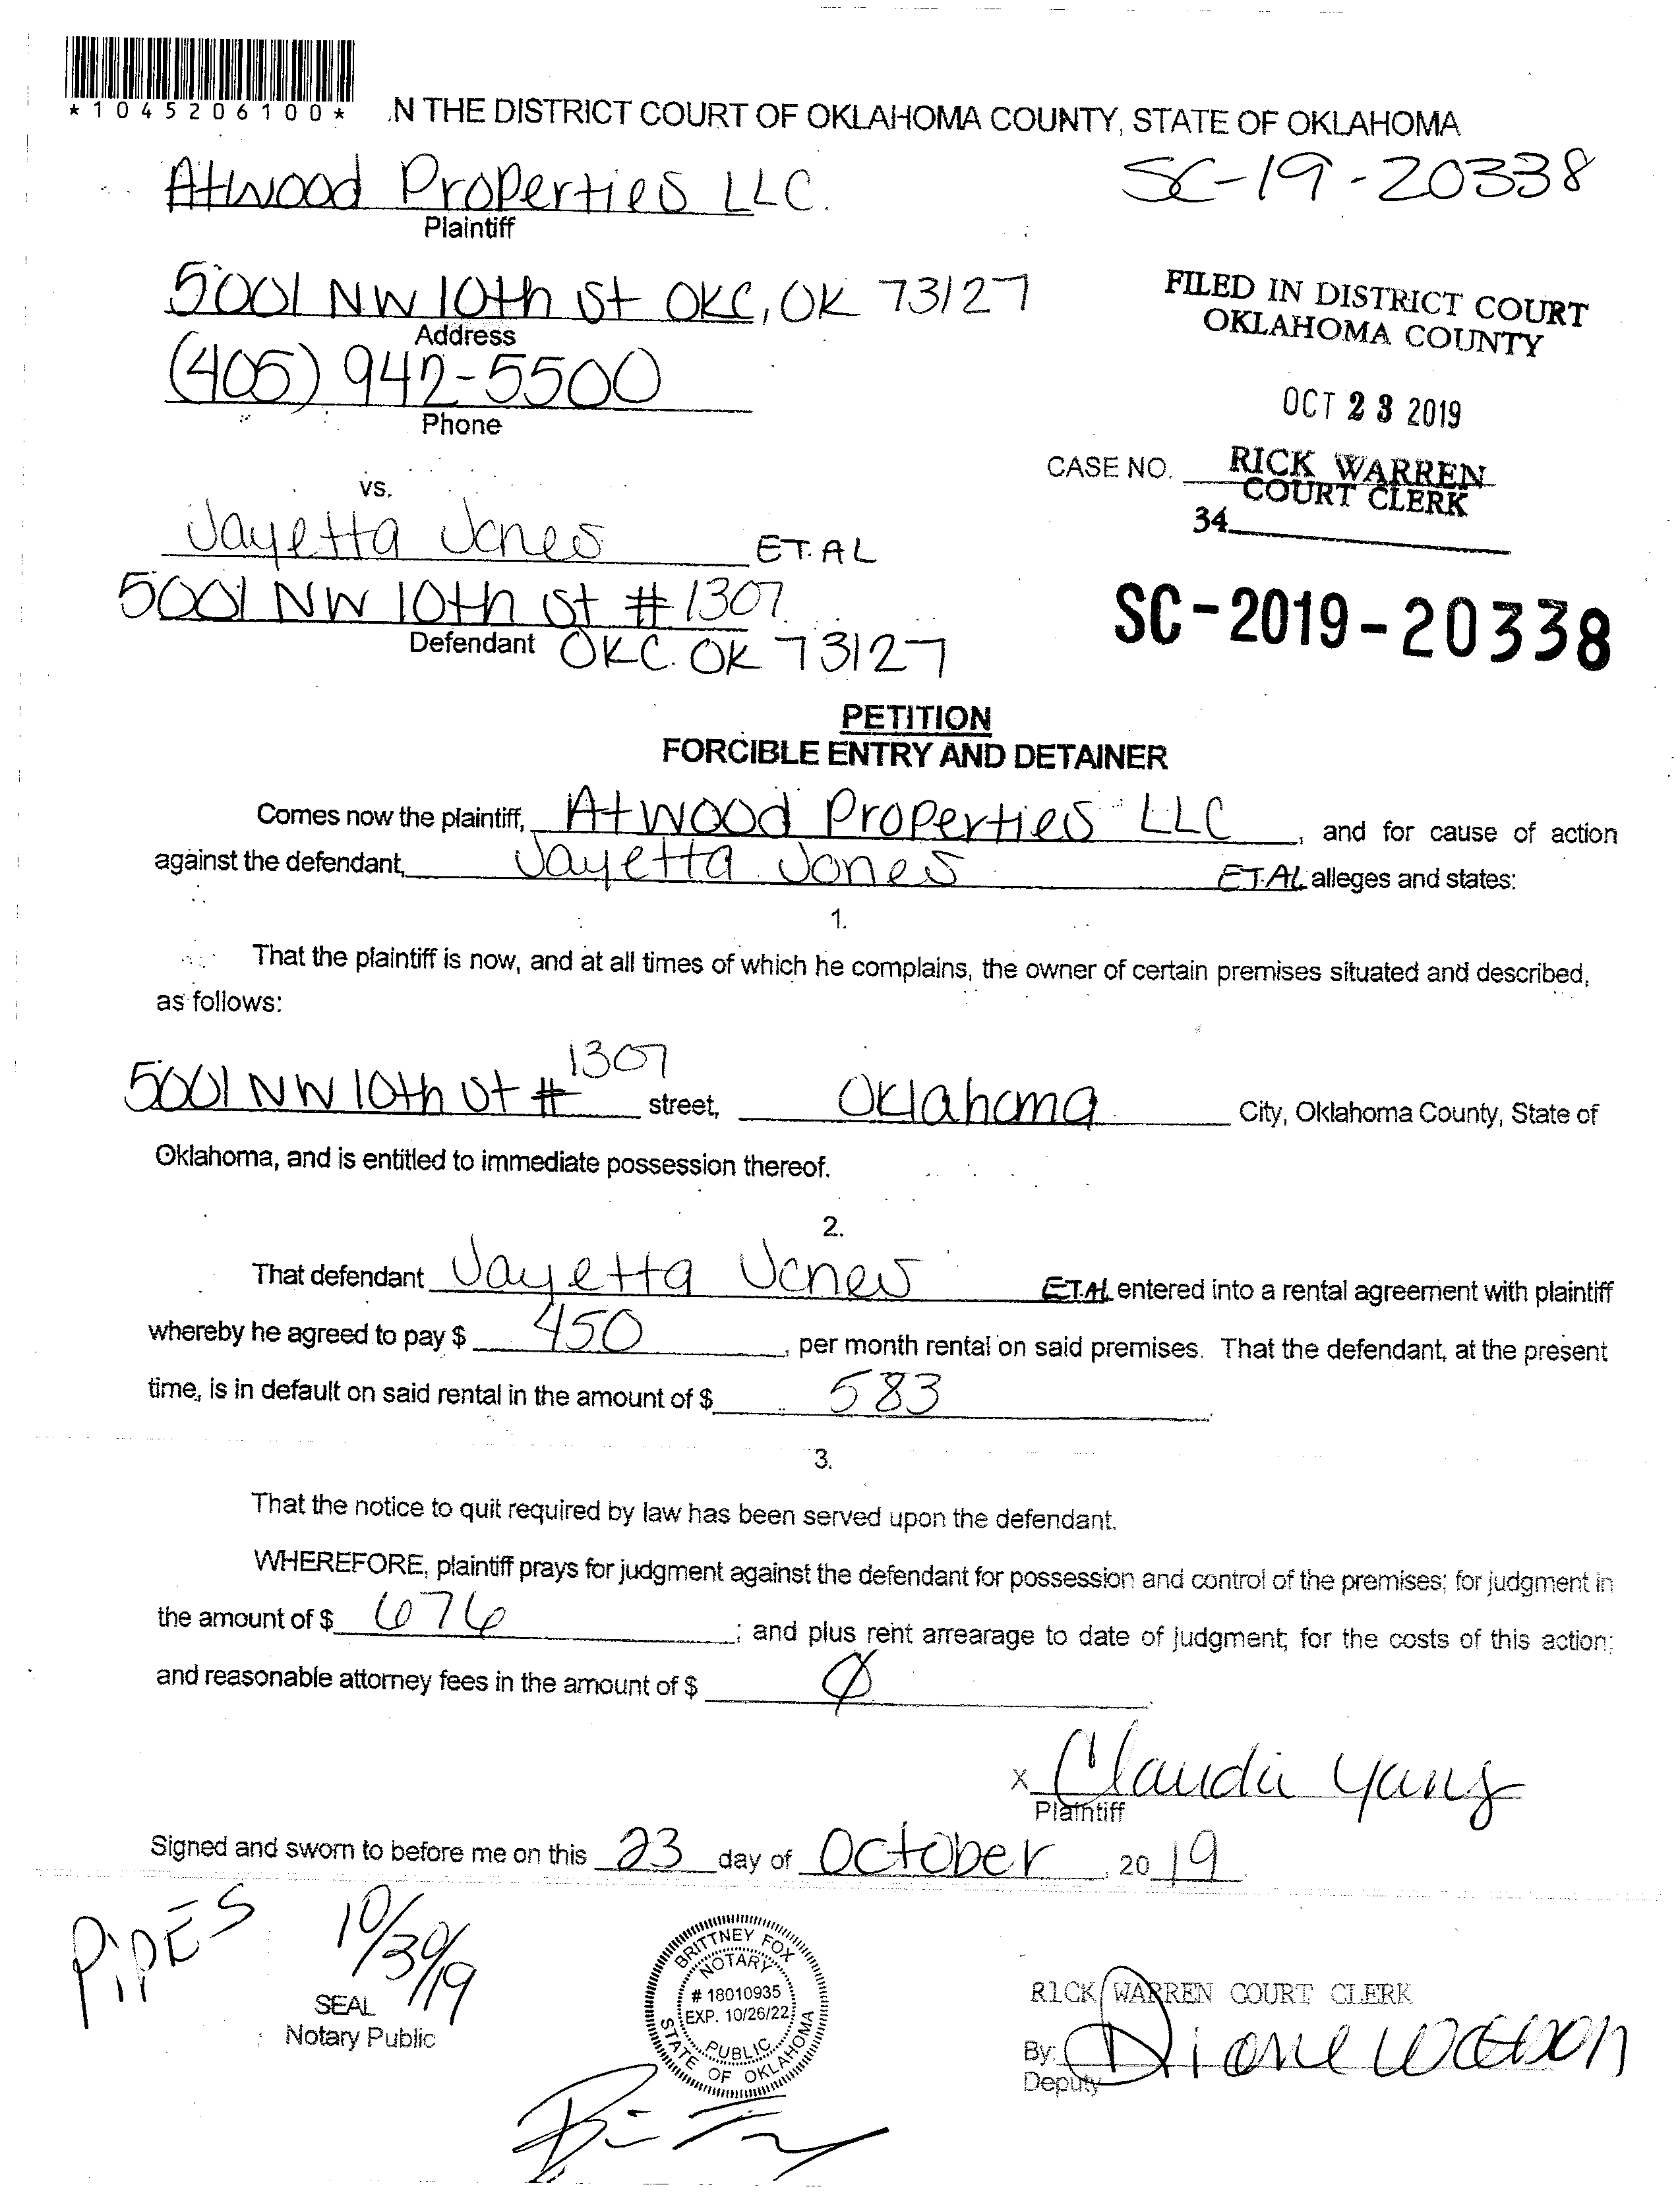 *1045206100*
N THE DISTRICT COURT OF OKLAHOMA COUNTY, STATE OF OKLAHOMA
Atwood Properties LLC.
SC-19-20338
Plaintiff
5001 NW 10th St OKC, OK 73127
Address
FILED IN DISTRICT COURT
OKLAHOMA COUNTY
(405) 942-5500
Phone
OCT 23 2019
CASE NO.
RICK WARREN
COURT CLERK
34
vs.
Jayetta Jones ET.AL
5001 NW 10th St #1307
Defendant OKC. OK 73127
SC-2019-20338
PETITION
FORCIBLE ENTRY AND DETAINER
Comes now the plaintiff, Atwood Properties LLC, and for cause of action
against the defendant, Jayetta Jones ET.AL alleges and states:
1.
That the plaintiff is now, and at all times of which he complains, the owner of certain premises situated and described,
as follows:
5001 NW 10th St # 1307 street, Oklahoma City, Oklahoma County, State of
Oklahoma, and is entitled to immediate possession thereof.
2.
That defendant Jayetta Jones ET.AL entered into a rental agreement with plaintiff
whereby he agreed to pay $ 450, per month rental on said premises. That the defendant, at the present
time, is in default on said rental in the amount of $ 583.
3.
That the notice to quit required by law has been served upon the defendant.
WHEREFORE, plaintiff prays for judgment against the defendant for possession and control of the premises; for judgment in
the amount of $ 676; and plus rent arrearage to date of judgment; for the costs of this action;
and reasonable attorney fees in the amount of $ Ø.
x Claudia Yang
Plaintiff
Signed and sworn to before me on this 23 day of October, 2019.
PiPES 10/30/19
SEAL
Notary Public
BRITTNEY FOX
NOTARY
# 18010935
EXP. 10/26/22
PUBLIC
STATE OF OKLAHOMA
RICK WARREN COURT CLERK
By: Diane Watson
Deputy